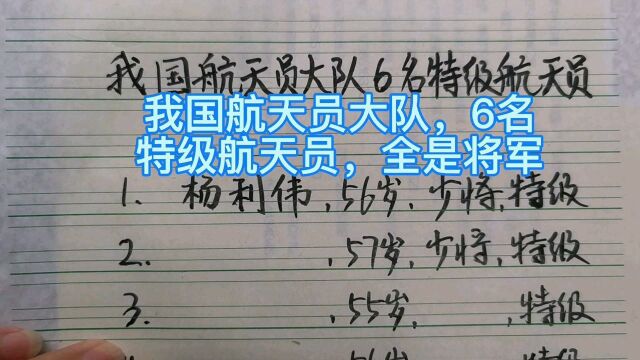 我国航天员大队6名特级航天员
我国航天员大队，6名
特级航天员，全是将军
1. 杨利伟,56岁,少将,特级
2. ,57岁,少将,特级
3. ,55岁, ,特级
,56岁, ,特级